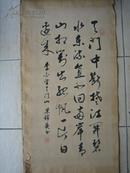 天门中断楚江开碧
水东流至此回两岸青
山相对出孤帆一片日
边来